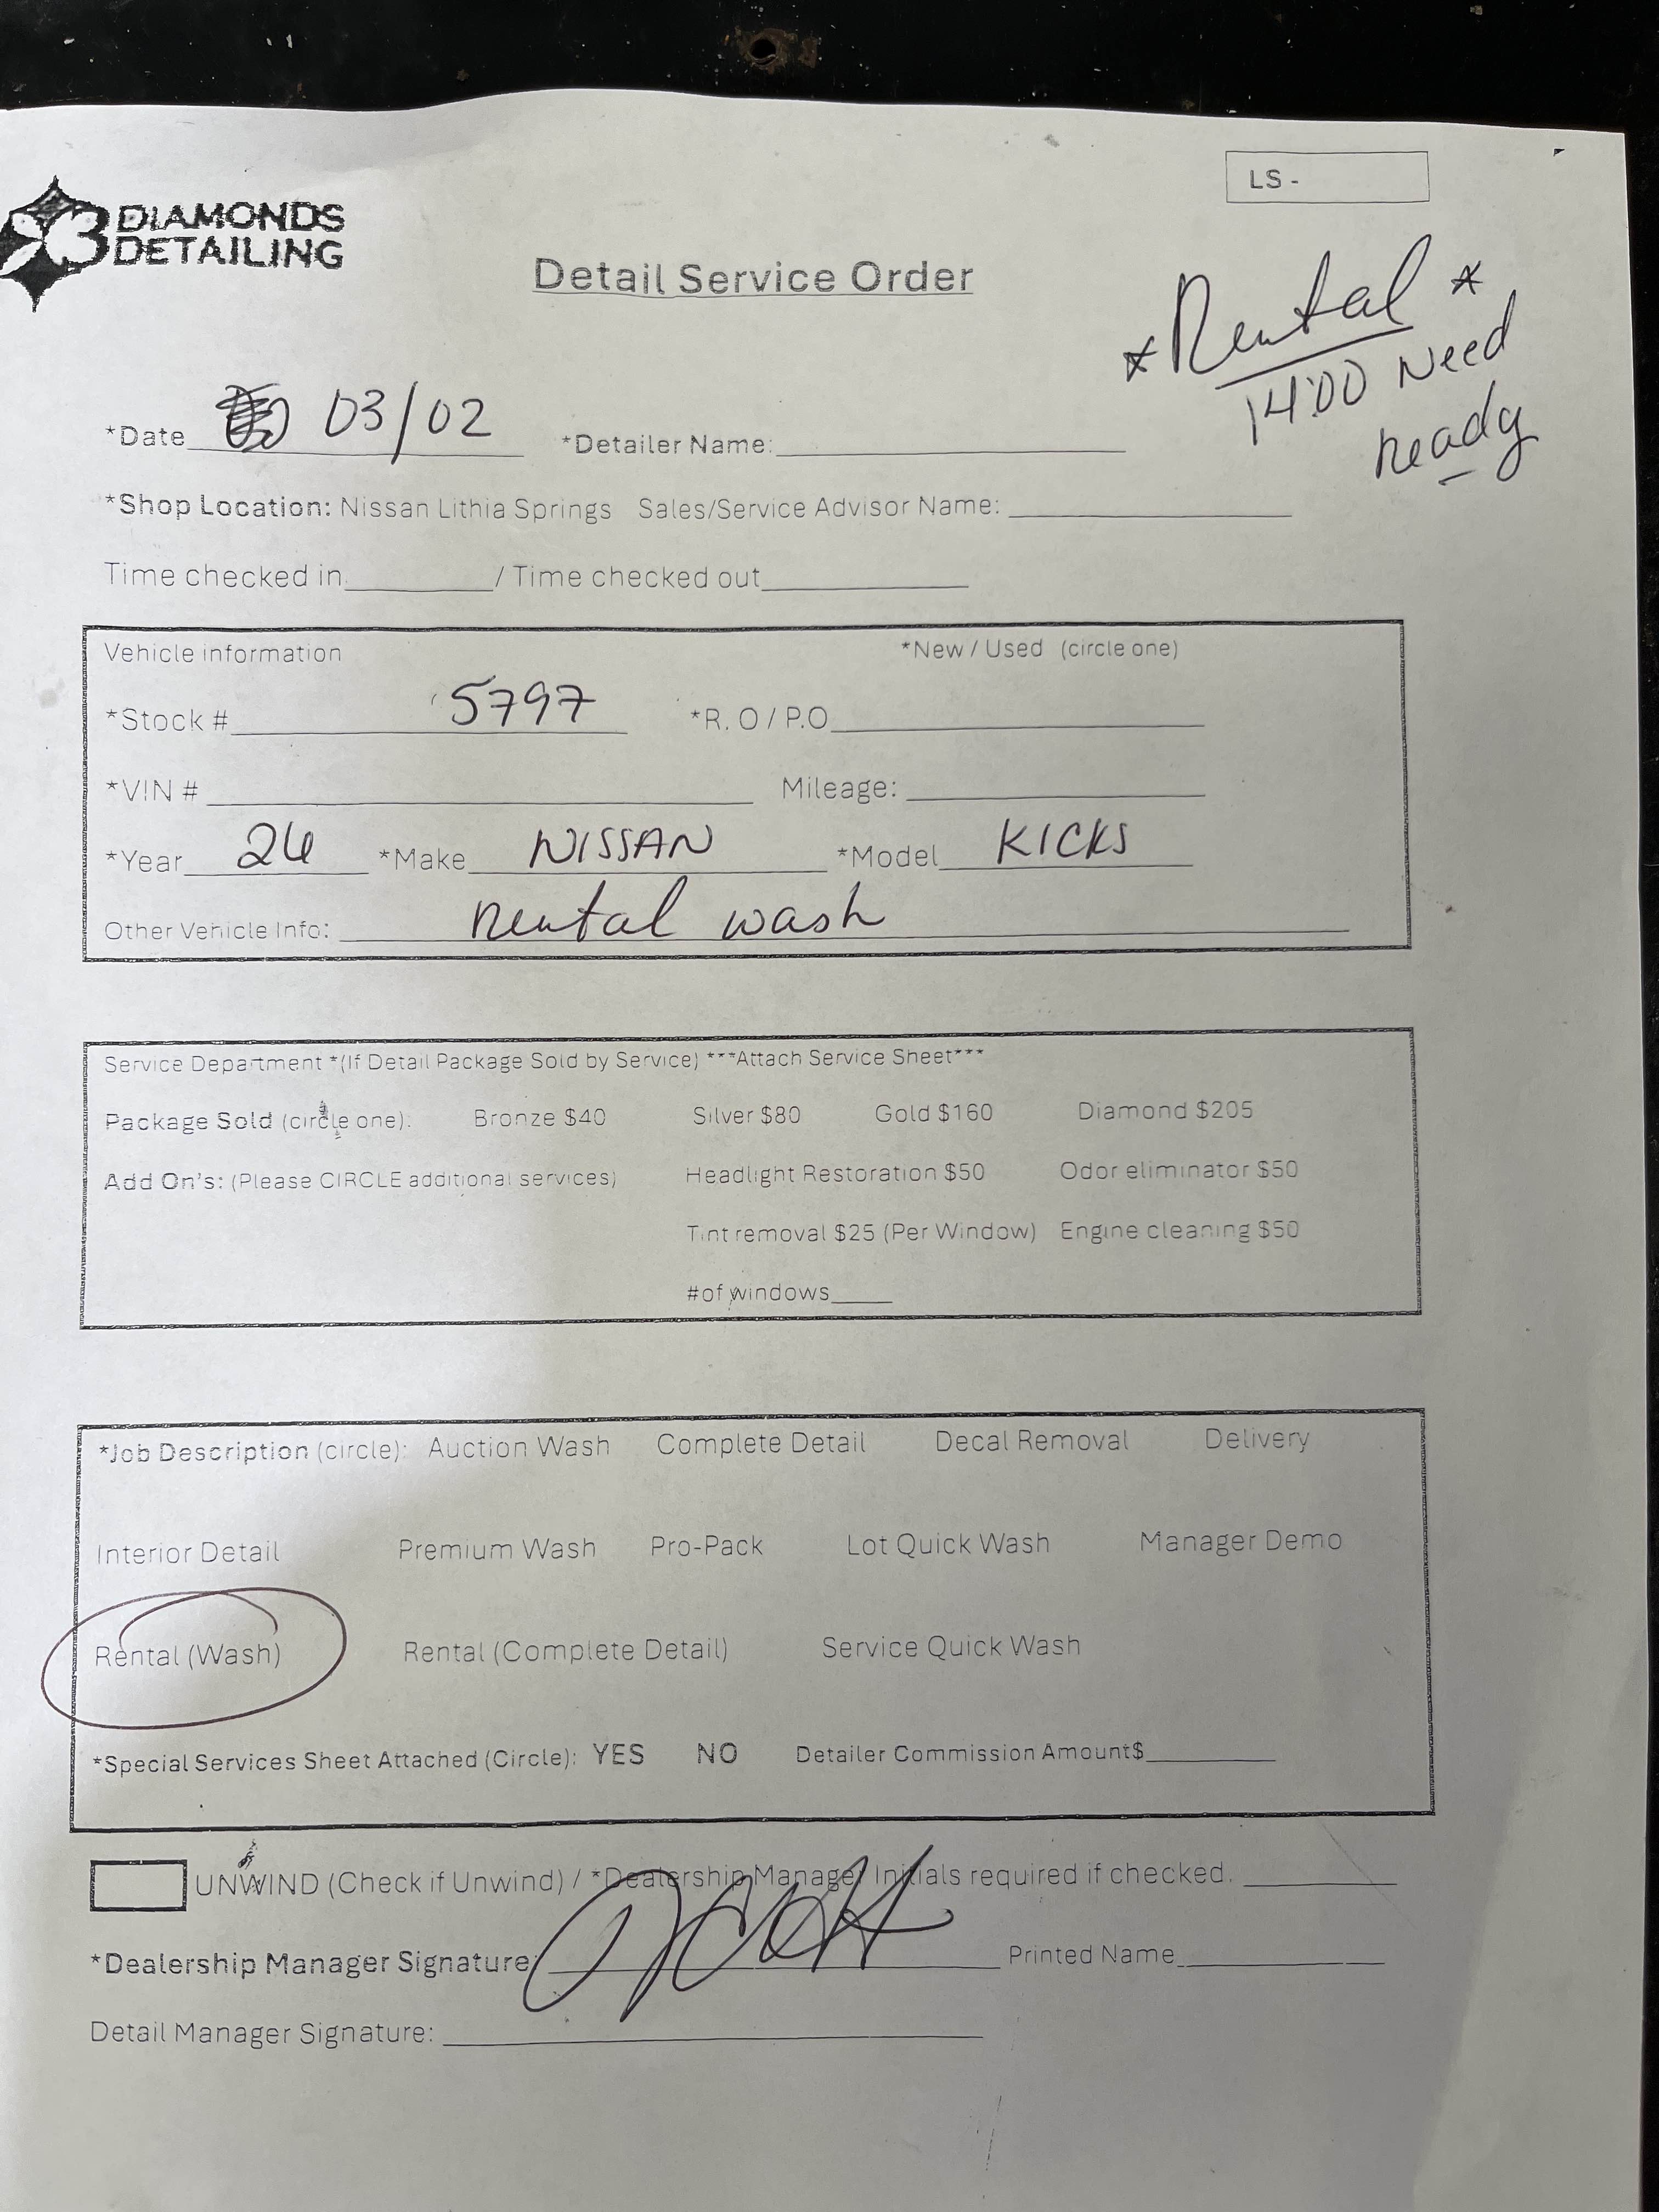 LS -
3 DIAMONDS
DETAILING
Detail Service Order
*Rental*
14:00 Need
Ready
*Date 03/02 *Detailer Name:
*Shop Location: Nissan Lithia Springs Sales/Service Advisor Name:
Time checked in / Time checked out
Vehicle information *New / Used (circle one)
*Stock # 5797 *R. O / P.O
*VIN # Mileage:
*Year 26 *Make NISSAN *Model KICKS
Other Vehicle Info: Rental wash
Service Department *(If Detail Package Sold by Service) ***Attach Service Sheet***
Package Sold (circle one): Bronze $40 Silver $80 Gold $160 Diamond $205
Add On's: (Please CIRCLE additional services) Headlight Restoration $50 Odor eliminator $50
Tint removal $25 (Per Window) Engine cleaning $50
#of windows
*Job Description (circle): Auction Wash Complete Detail Decal Removal Delivery
Interior Detail Premium Wash Pro-Pack Lot Quick Wash Manager Demo
Rental (Wash) Rental (Complete Detail) Service Quick Wash
*Special Services Sheet Attached (Circle): YES NO Detailer Commission Amount$
UNWIND (Check if Unwind) / *Dealership Manager Initials required if checked.
*Dealership Manager Signature: Printed Name
Detail Manager Signature: